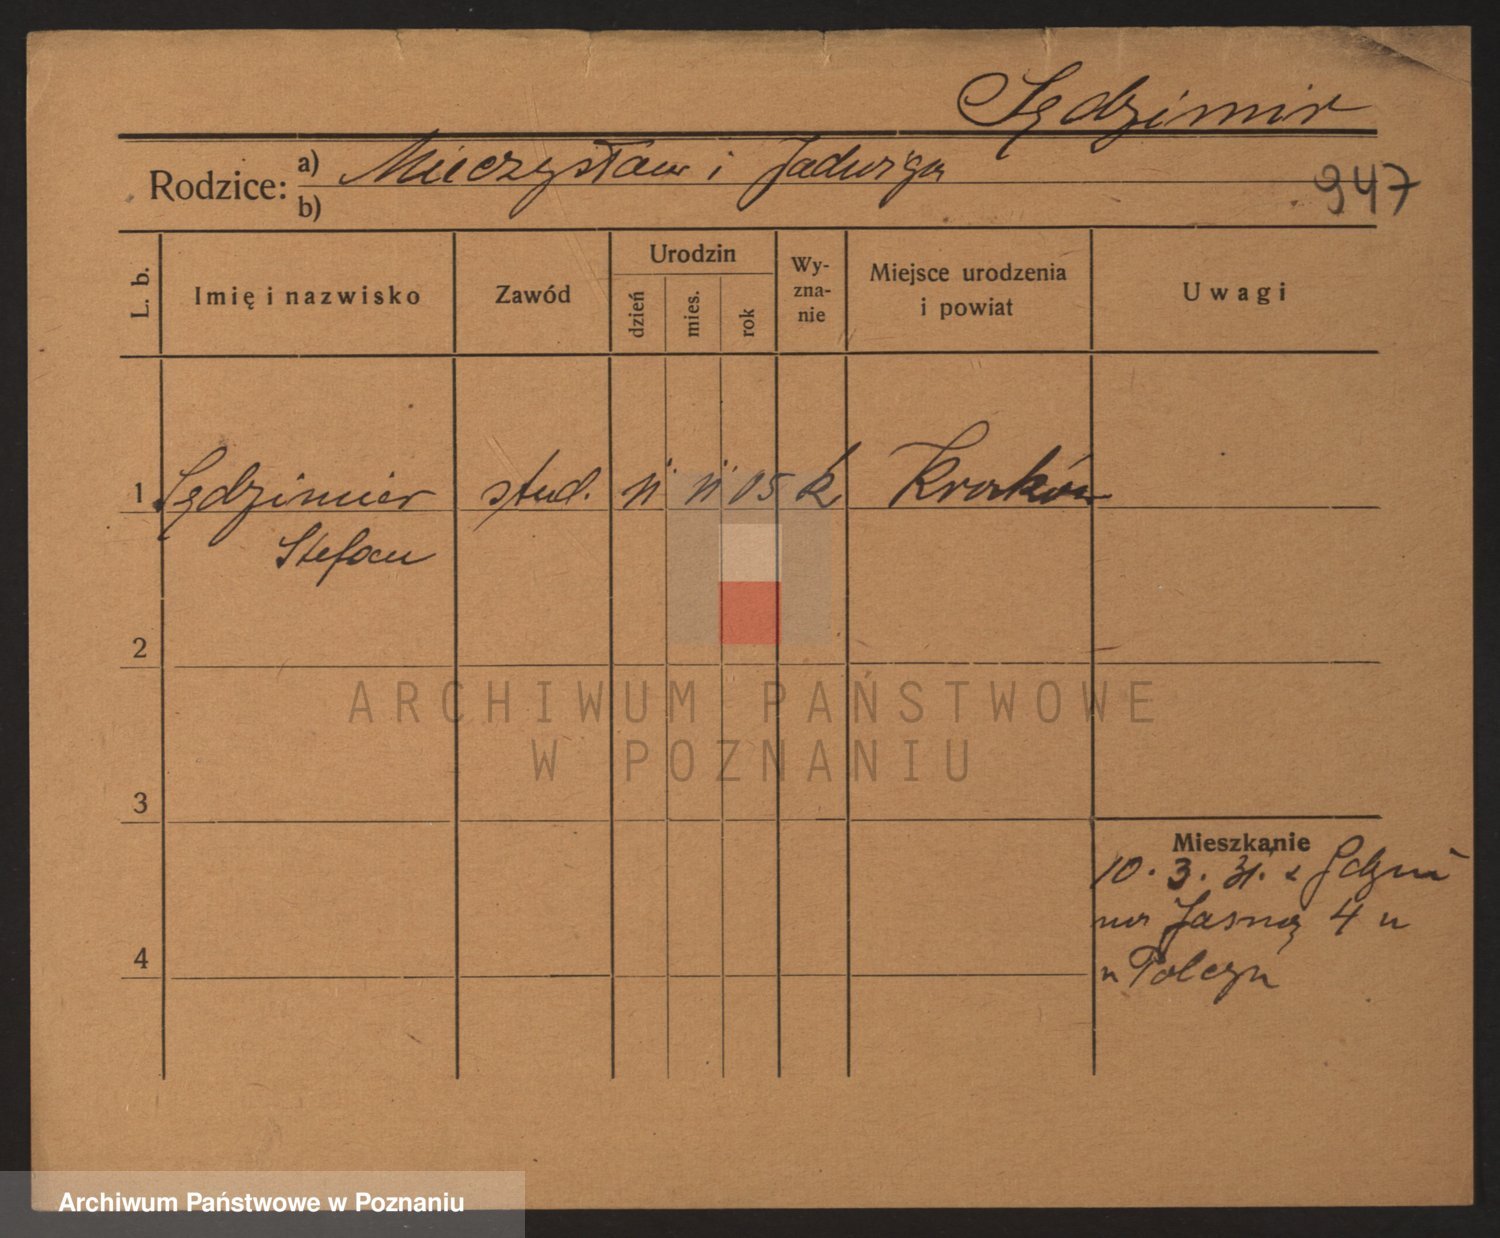 Sędzimir
Rodzice: a) Mieczysław i Jadwiga
b)
947
L. b. Imię i nazwisko Zawód Urodzin dzień mies. rok Wy-zna-nie Miejsce urodzenia i powiat Uwagi
1 Sędzimier stud. 11 11 05 k. Kraków
Stefan
2
3
4
Mieszkanie
10. 3. 31. z Gdyni
na Jasną 4 u
ARCHIWUM PAŃSTWOWE
W POZNANIU
Archiwum Państwowe w Poznaniu